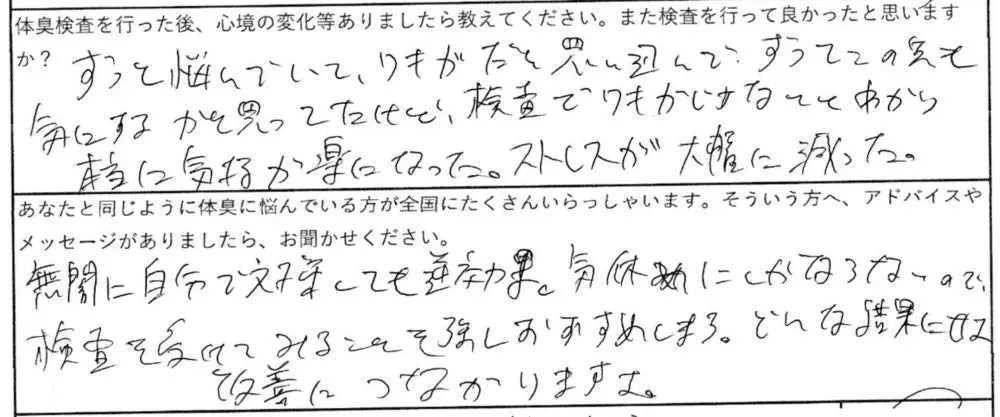 体臭検査を行った後、心境の変化等ありましたら教えてください。また検査を行って良かったと思います
か?
ずっと悩んでいて、ワキガだと思い込んで
気にする かと思ってたけど、検査でワキガじゃないとわかり
本当に気持が楽になった。ストレスが大幅に減った。
あなたと同じように体臭に悩んでいる方が全国にたくさんいらっしゃいます。そういう方へ、アドバイスや
メッセージがありましたら、お聞かせください。
無闇に自分で対策しても逆効果。気休めにしかならないので、
検査を受けてみることを強くおすすめします。どんな結果にせよ
改善につながりますよ。